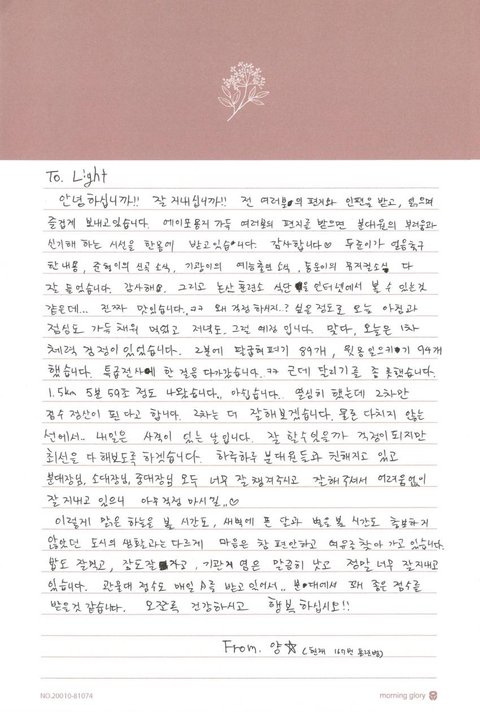 To. Light
안녕하십니까!! 잘 지내십니까!! 전 여러분의 편지와 인편을 받고, 읽으며
즐겁게 보내고있습니다. 에이포용지 가득 여러분의 편지를 받으면 분대원의 부러움과
신기해 하는 시선을 한몸에 받고있습니다. 감사합니다♡ 두준이가 영웅축구
한내용, 준형이의 신곡 소식, 기광이의 예능출연 소식, 동운이의 뮤지컬소식 다
잘 들었습니다. 감사해요, 그리고 논산 훈련소 식단을 인터넷에서 볼 수 있는것
같은데... 진짜 맛있습니다,ㅋㅋ 왜 걱정 하시지..? 싶은 정도로 오늘 아침과
점심도 가득 채워 먹었고 저녁도 그럴 예정 입니다. 맞다, 오늘은 1차
체력 검정이 있었습니다. 2분에 팔굽혀펴기 89개, 윗몸일으키기 94개
했습니다. 특급전사에 한 걸음 다가갔습니다.ㅋㅋ 근데 달리기를 좀 못했습니다.
1.5km 5분 59초 정도 나왔습니다.. 아쉽습니다. 열심히 했는데 2차만
점수 정산이 된다고 합니다. 2차는 더 잘해보겠습니다. 물론 다치지 않는
선에서.. 내일은 사격이 있는 날입니다. 잘 할수있을까 걱정이되지만
최선을 다해보도록 하겠습니다. 하루하루 분대원들과 친해지고 있고
분대장님, 소대장님, 중대장님 모두 너무 잘 챙겨주시고 잘해주셔서 어려움없이
잘 지내고 있으니 아무걱정 마시길,,♡
이렇게 맑은 하늘을 볼 시간도, 새벽에 뜬 달과 별을 볼 시간도 충분하지
않았던 도시의 생활과는 다르게 마음은 참 편안하고 여유를 찾아 가고 있습니다.
밥도 잘먹고, 잠도 잘자고, 기관지 염은 말끔히 낫고 정말 너무 잘지내고
있습니다. 관물대 점수도 매일 A를 받고있어서.. 분대에서 꽤 좋은 점수를
받은것 같습니다. 오랫도록 건강하시고 행복 하십시오!!
From. 양☆ (현재 167번 훈련병)
NO.20010-81074
morning glory